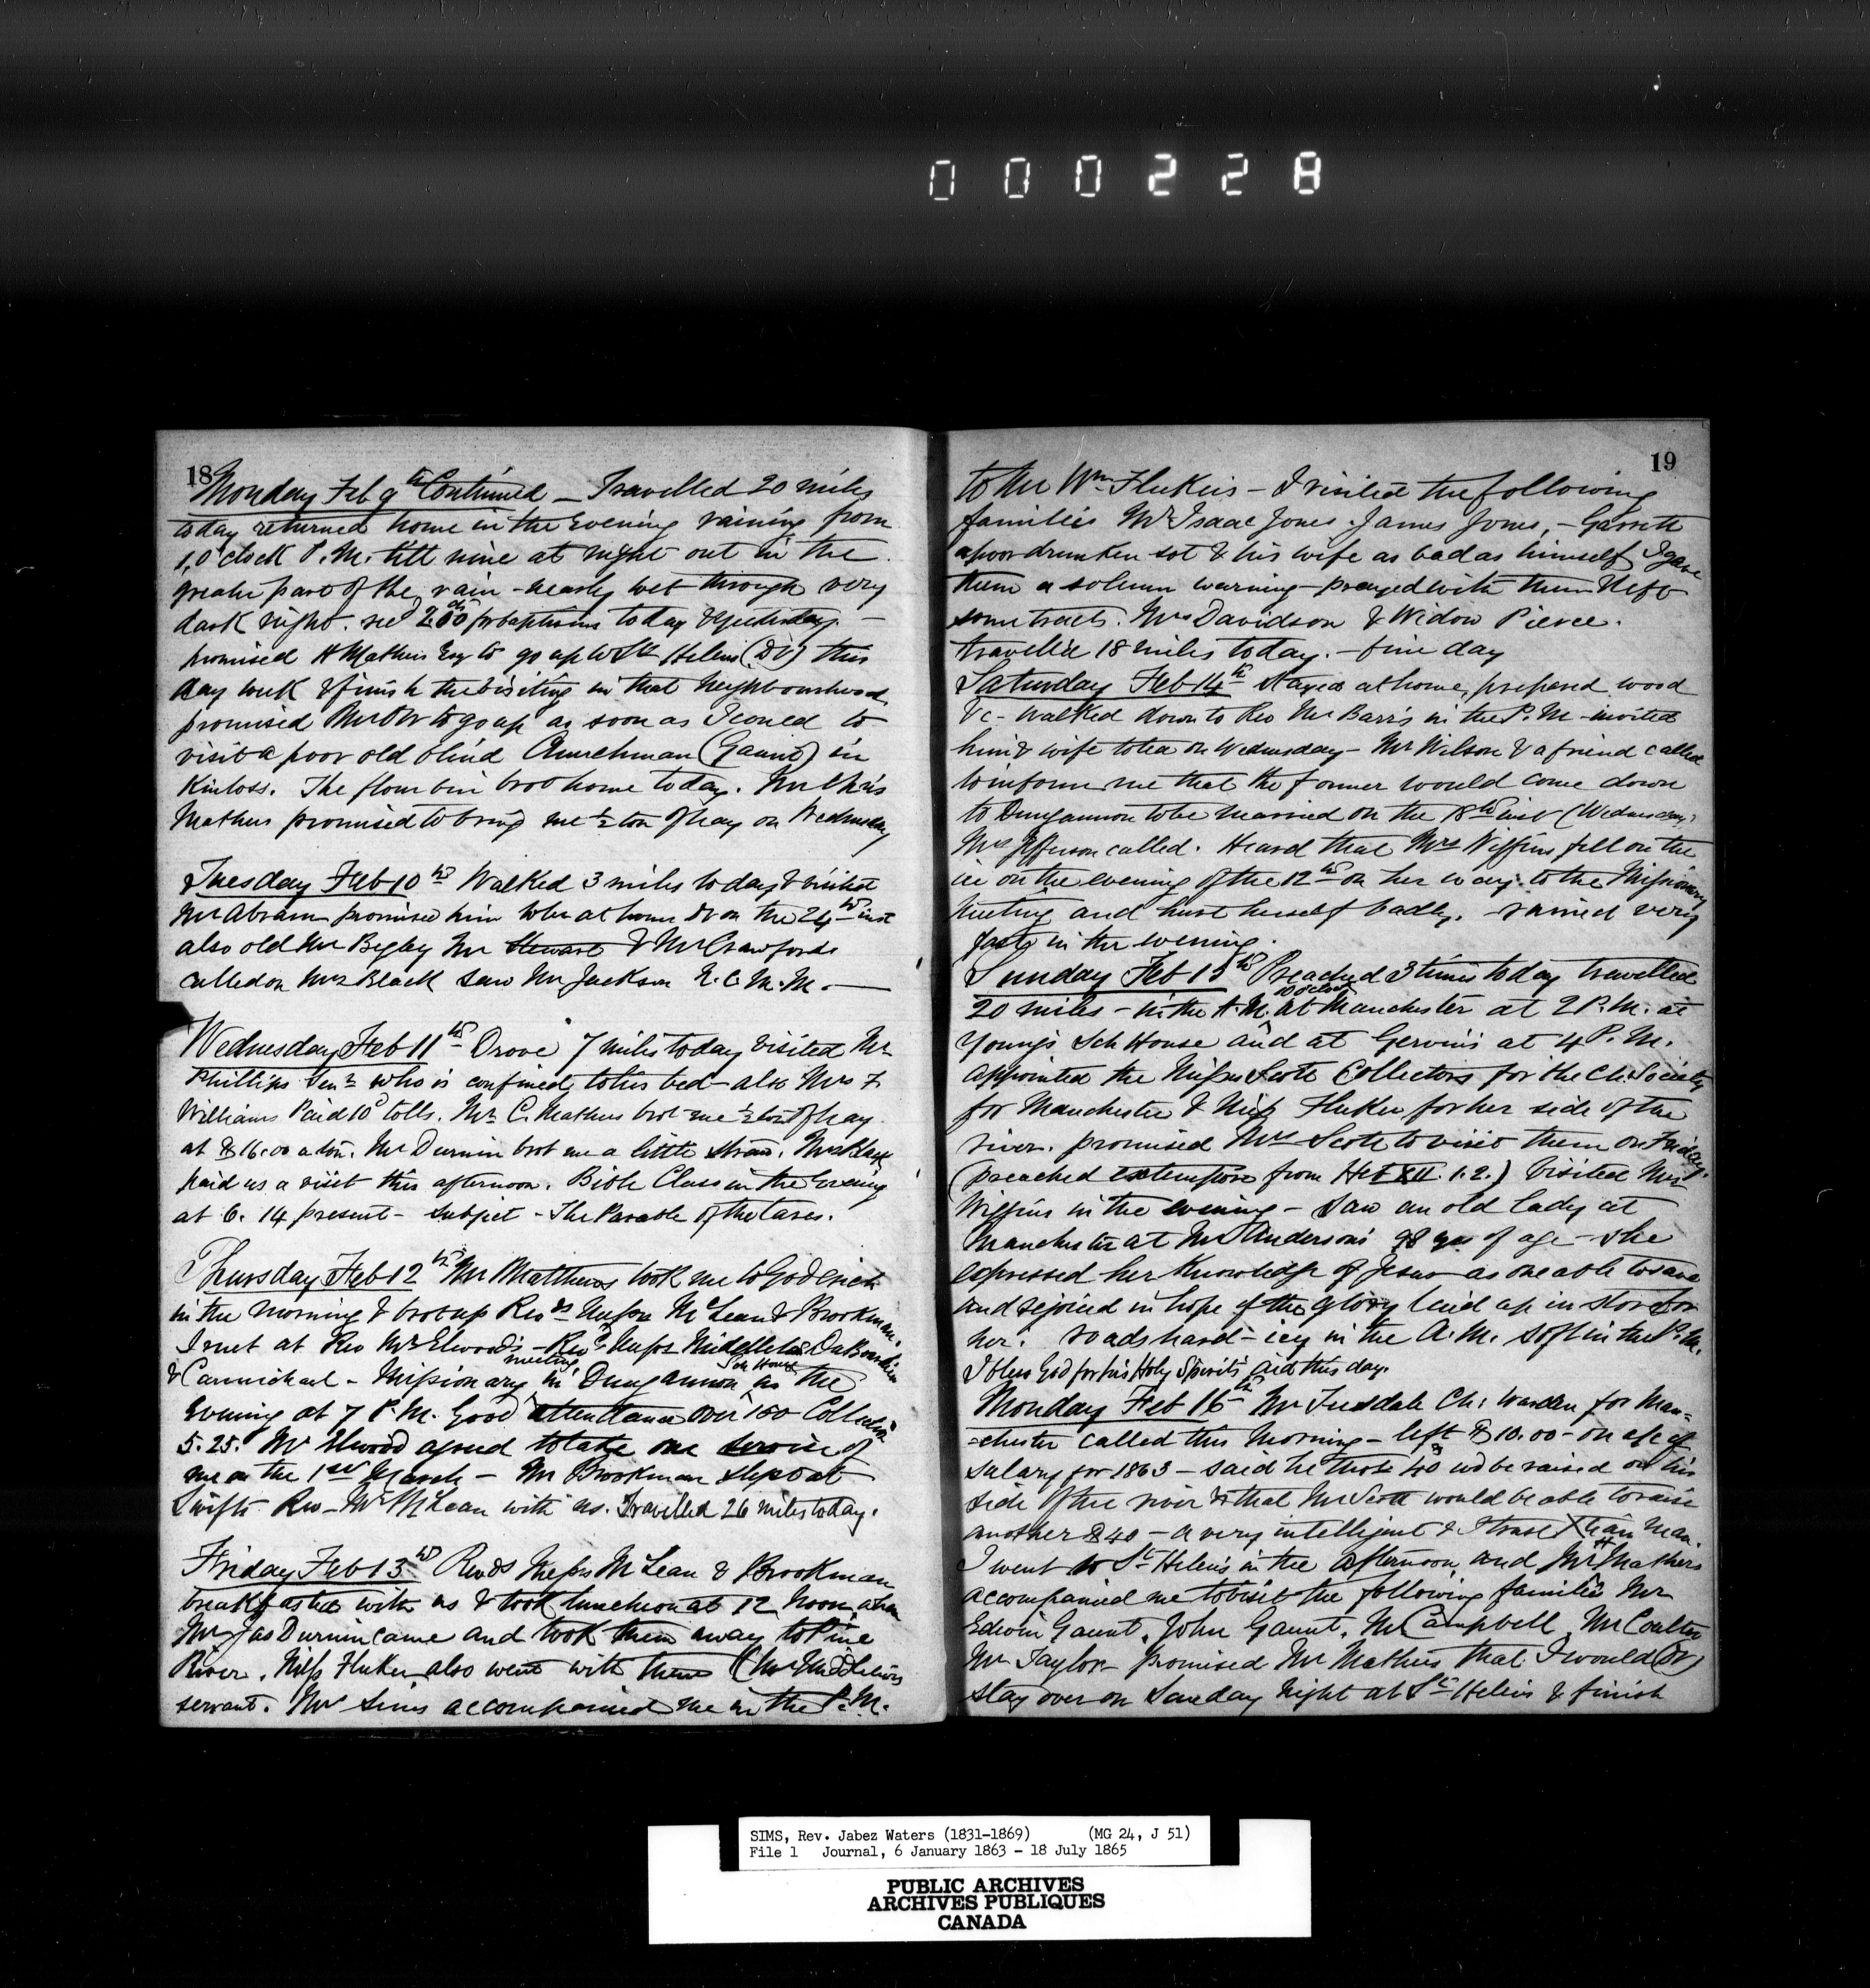 000228
18
Monday Feb 9th Continued – Travelled 20 miles
today returned home in the Evening raining from
1,O'clock P.M. till nine at night out in the
greater part of the rain – nearly wet through very
dark night. recd 2.00 for baptisms today & yesterday. –
promised H Mathers Esq to go up to St Helens (DV) this
day week & finish the visiting in that neighbourhood
promised Mr to go up as soon as I could to
visit a poor old blind Churchman (Gaunt) in
Kinloss. The flour bin brot home today. Mr Chris
Mathers promised to bring me ½ ton of hay on Wednesday
Tuesday Feb 10th Walked 3 miles today & visited
Mr Abram promised him to be at home DV on the 24th inst
also old Mr Begley Mr Stewart & Mr Crawfords
called on Mrs Black saw Mr Jackson N.C.M.M. –
Wednesday Feb 11th Drove 7 miles today visited Mr
Phillips Senr who is confined to his bed – also Mrs F.
Williams Paid 10c tolls. Mr C. Mathers brot me ½ ton of hay
at $16.00 a ton. Mr Durnin brot me a little straw. Mrs Black
paid us a visit this afternoon. Bible Class in the Evening
at 6. 14 present – subject – The Parable of the tares.
Thursday Feb 12th Mr Matthews took me to Goderich
in the morning & brot up Revds Messrs McLean & Brookman.
I met at Rev Mr Elwood's – Revds Messrs Middleton
& Carmichael – Missionary meeting in Dungannon Sch House as the
Evening at 7 P.M. Good attendance over 150 Collection
5.25. Mr Elwood agreed to take one service of
me on the 1st March – Mr Brookman slept at
Swifts Rev – Mr McLean with us. Travelled 26 miles today.
Friday Feb 13th Revds Messrs McLean & Brookman
breakfasted with us & took luncheon at 12 Noon, when
Mr Jas Durnin came and took them away to Pine
River. Miss Fluker also went with them (Mr Middletons
servant. Mrs Sims accompanied me in the P.M.
19
to Mr Wm Flukers – I visited the following
families Mr Isaac Jones. James Jones, – Garrett
a poor drunken sot & his wife as bad as himself I gave
them a solemn warning – prayed with them & left
some tracts. Mrs Davidson & Widow Pierce.
travelled 18 miles today. – fine day
Saturday Feb 14th Stayed at home, prepared wood
&c – walked down to Rev Mr Barr's in the P.M. – invited
him & wife to tea on Wednesday – Mr Wilson & a friend called
to inform me that the former would come down
to Dungannon to be married on the 18th inst (Wednesday)
Mrs Jefferson called. Heard that Mrs Wiggins fell on the
ice on the evening of the 12th on her way to the Missionary
Meeting and hurt herself badly. – rained very
fast in the evening.
Sunday Feb 15th Preached 3 times today travelled
20 miles – in the A.M. 10 o'clock at Manchester at 2 P.M. at
Young's Sch House and at Gervin's at 4 P.M.
appointed the Misses Scott Collectors for the Ch. Society
for Manchester & Miss Fluker for her side of the
river. promised Mrs Scott to visit them on Friday.
(preached extempore from Heb XII. 1.2.) Visited Mrs
Wiggins in the evening – saw an old lady at
Manchester at Mr Anderson's 98 yrs of age – she
expressed her knowledge of Jesus as one able to save
and rejoiced in hope of the glory laid up in store for
her. roads hard – icy in the A.M. soft in the P.M.
I bless God for his Holy Spirit's aid this day.
Monday Feb 16th Mr Ch: Warden for Man=
=chester called this Morning – left $10.00 – on a/c of
salary for 1863 – said he thot $40 wd be raised on his
side of the river & that Mr Scott would be able to raise
another $40 – a very intelligent & I trust Xtian man.
I went to St Helens in the afternoon, and Mr H Mathers
accompanied me to visit the following families Mr
Edwin Gaunt, John Gaunt, Mr Campbell, Mr Coulter
Mr Taylor – promised Mr Mathers that I would (DV)
stay over on Sunday night at St Helens & finish
SIMS, Rev. Jabez Waters (1831-1869) (MG 24, J 51)
File 1 Journal, 6 January 1863 - 18 July 1865
PUBLIC ARCHIVES
ARCHIVES PUBLIQUES
CANADA